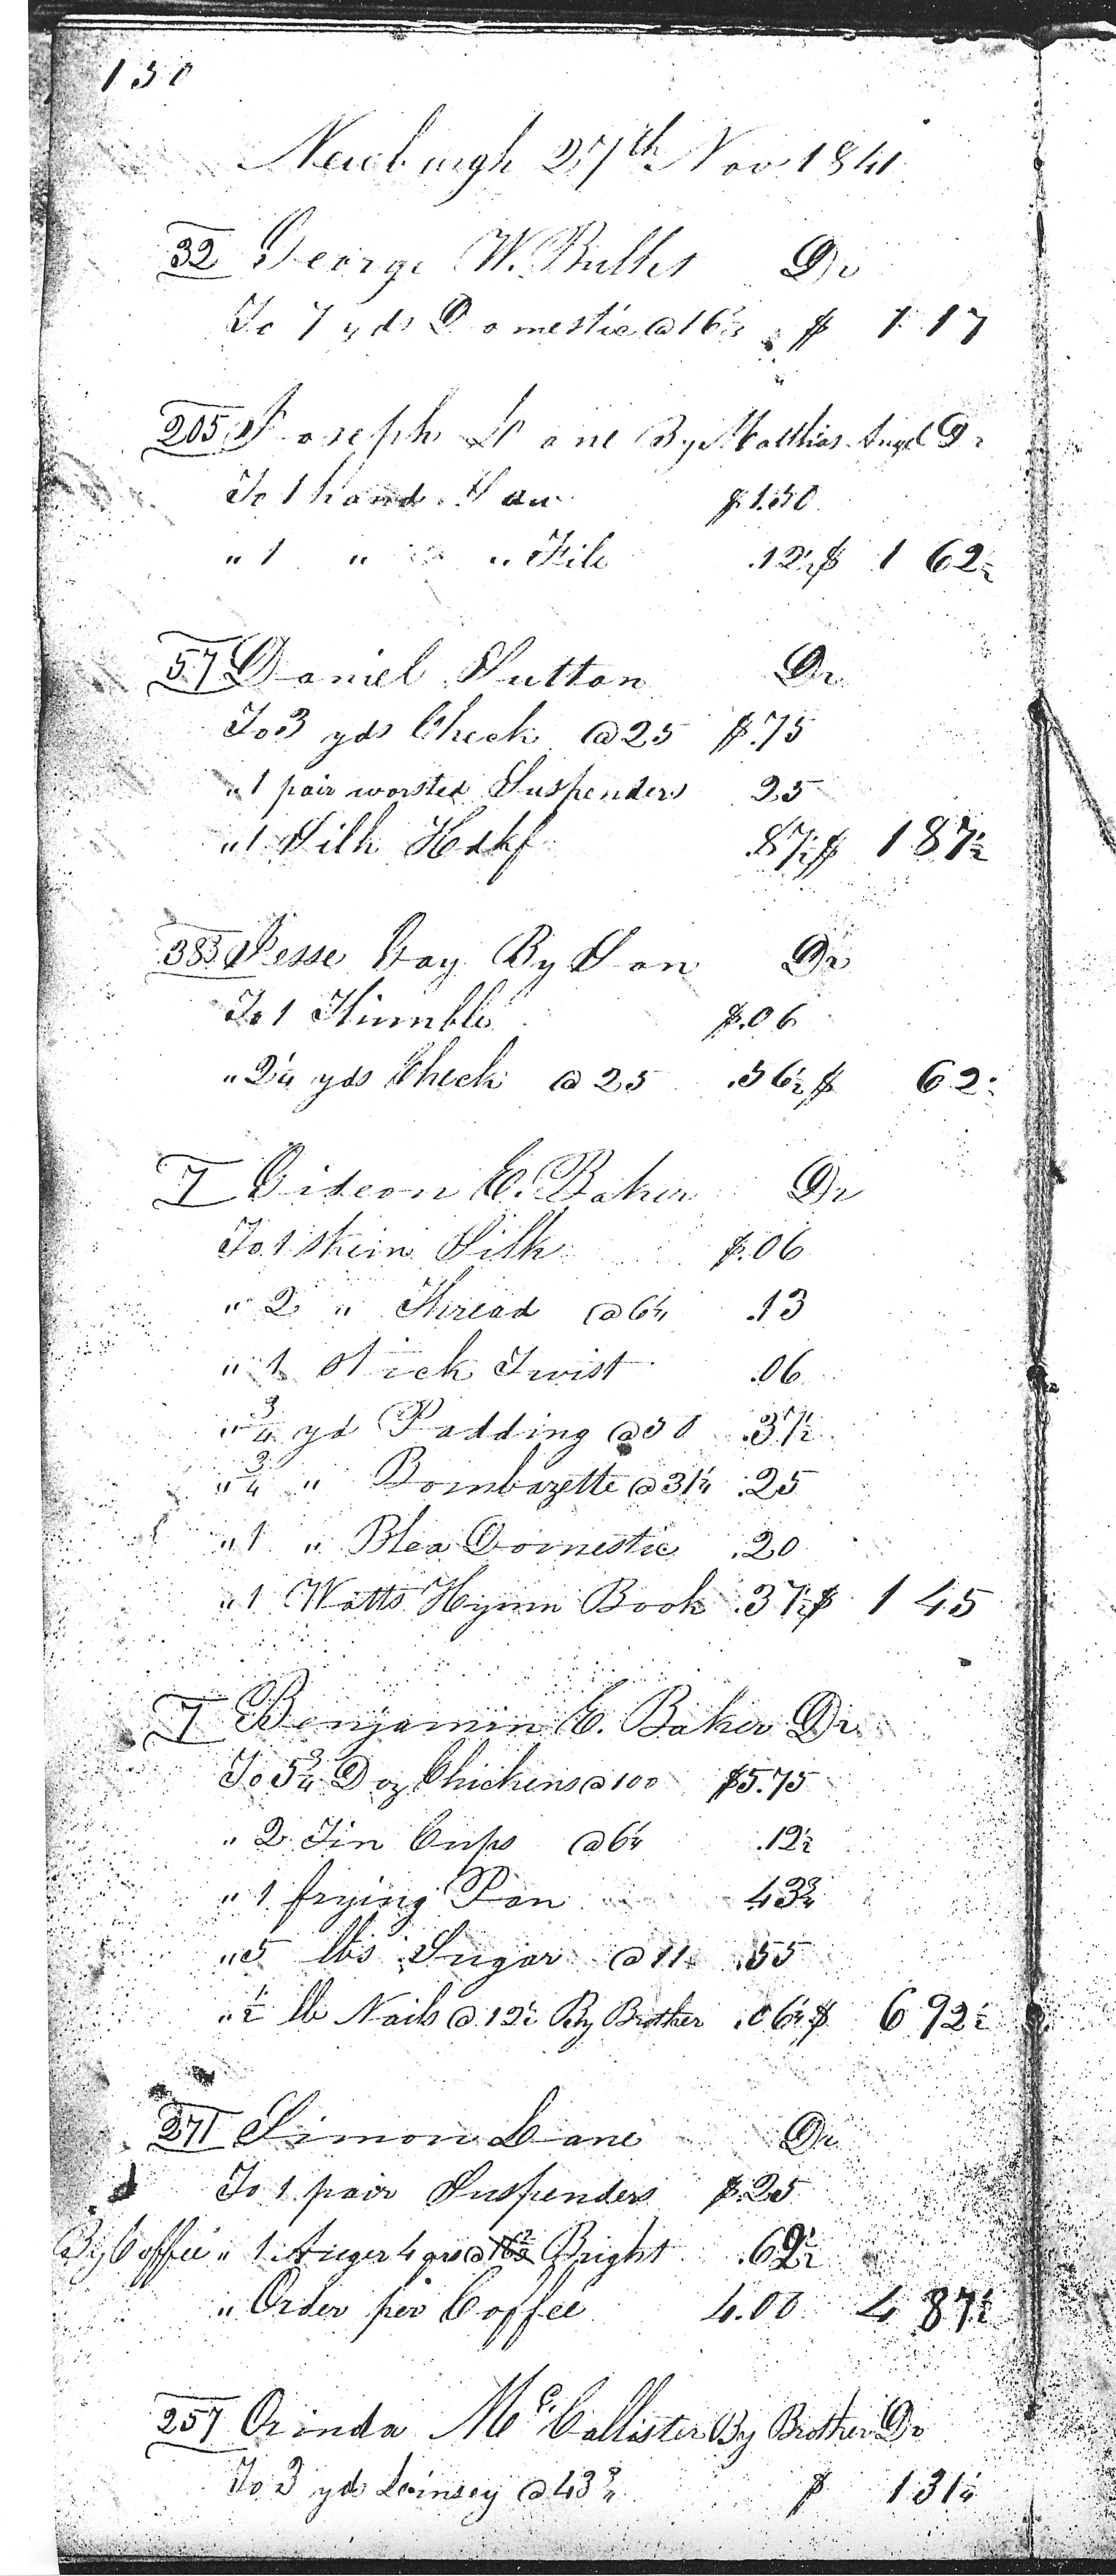 150
Newburgh 27th Nov 1841
32 George W. Butles Dr
To 7 yds Domestic @ 16⅔ $ 1 17
205 Joseph Lane By Matthias Angel Dr
To 1 hand Saw $1.50
" 1 " " File .12½ $ 1 62½
57 Daniel Sutton Dr
To 3 yds Check @ 25 $.75
" 1 pair worsted Suspenders 25
" 1 Silk Hdkf .87½ $ 1 87½
383 Jesse Gay By Son Dr
To 1 Thimble $.06
" 2¼ yds Check @ 25 .56½ $ 62½
7 Gideon E. Baker Dr
To 1 skein Silk $.06
" 2 " Thread @ 6¼ .13
" 1 Stick Twist .06
" ¾ yd Padding @ 50 .37½
" ¾ " Bombazette @ 31¼ .25
" 1 " Blea Domestic .20
" 1 Watts Hymn Book .37½ $ 1 45
7 Benjamin E. Baker Dr
To 5¾ Doz Chickens @ 100 $5.75
" 2 Tin Cups @ 6¼ .12½
" 1 frying Pan 43¾
" 5 lbs Sugar @ 11 .55
" ½ lb Nails @ 12½ By Brother .06¼ $ 6 92½
271 Simon Lane Dr
To 1 pair Suspenders $.25
By Coffee " 1 Auger 4 qrs @ Bright .62½
" Order per Coffee 4.00 4 87½
257 Orinda McCallister By Brother Dr
To 3 yds Leinsey @ 43¾ $ 1 31¼